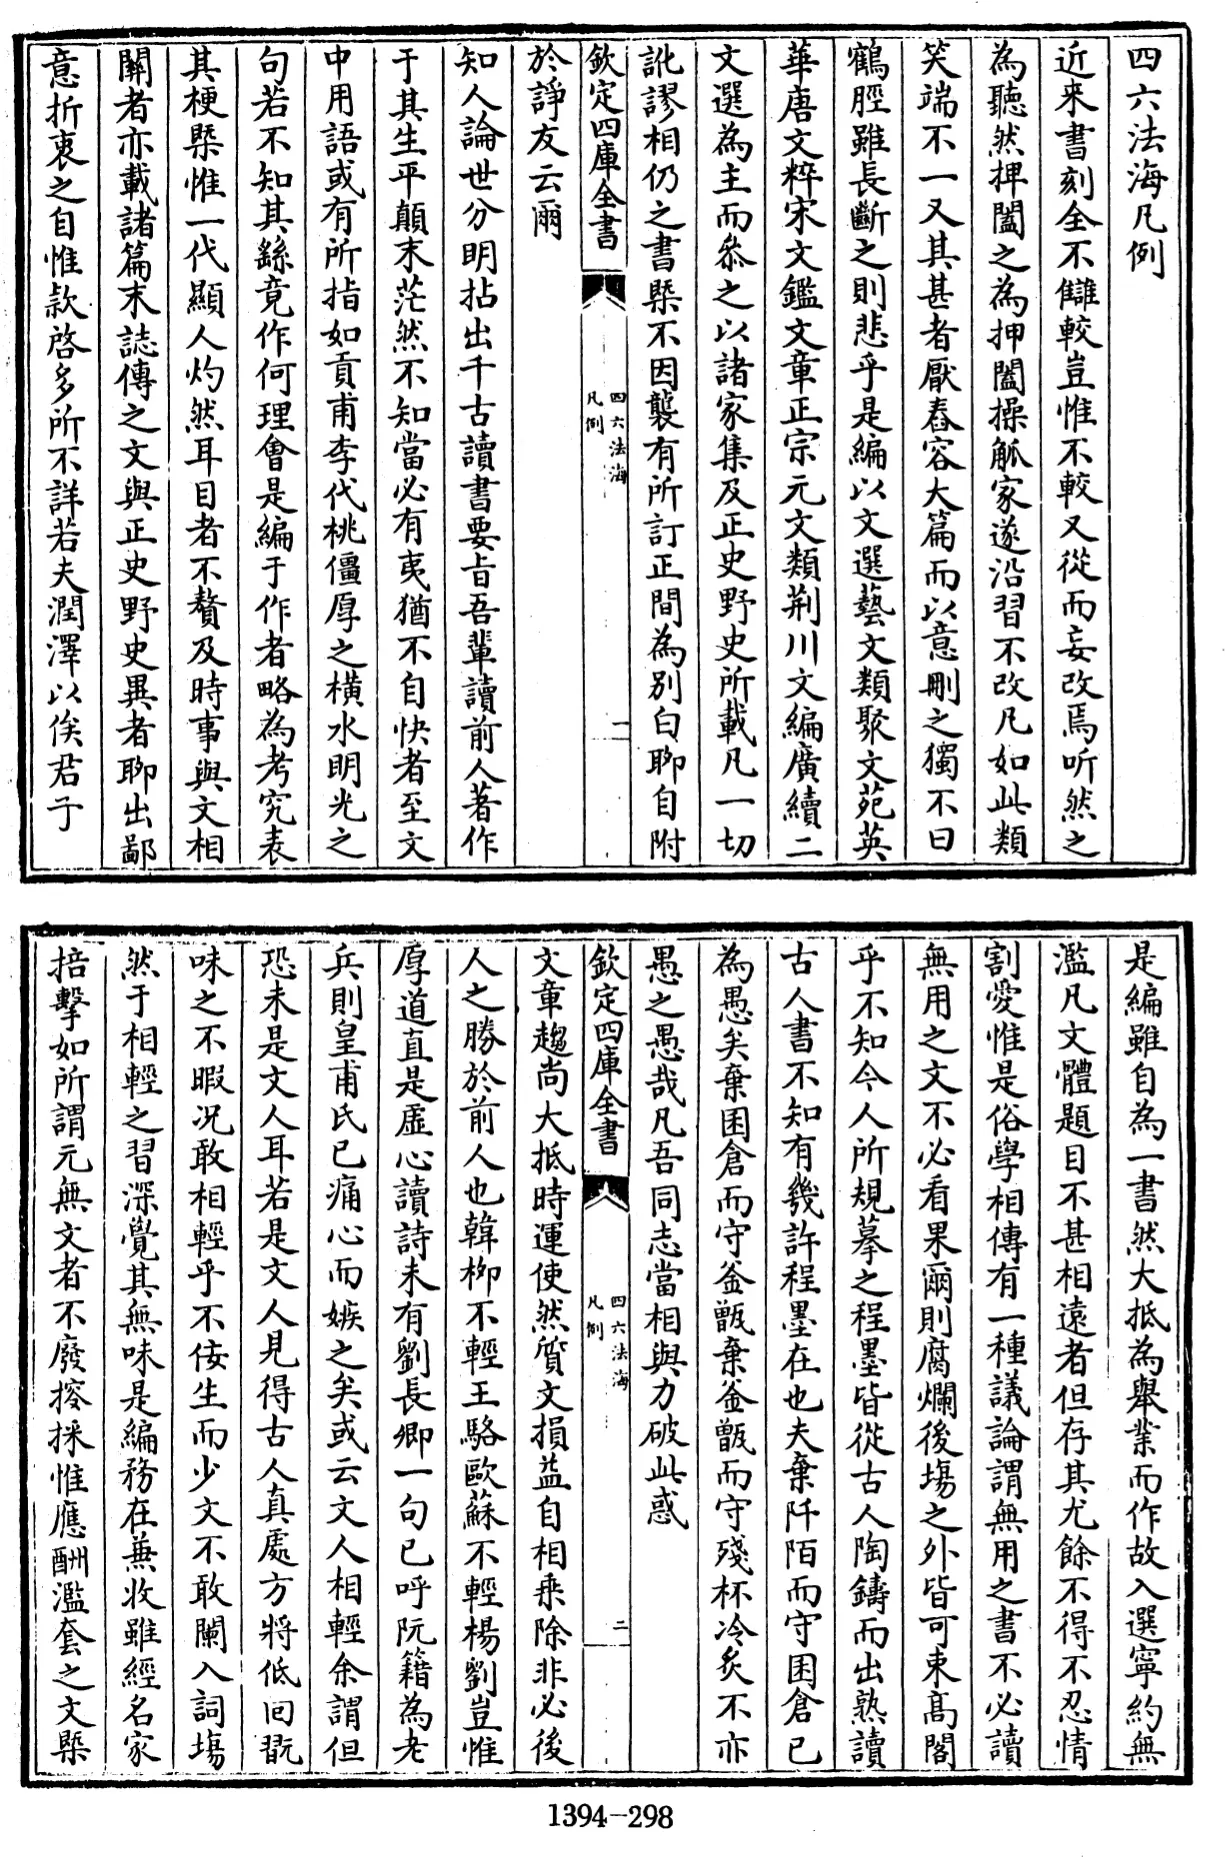 四六法海凡例
近来書刻全不讎較豈惟不較又從而妄改焉听然之
為聽然捭闔之為押闔操觚家遂沿習不改凡如此類
笑端不一又其甚者厭舂容大篇而以意刪之獨不曰
鶴脛雖長斷之則悲乎是編以文選藝文類聚文苑英
華唐文粹宋文鑑文章正宗元文類荆川文編廣續二
文選為主而叅之以諸家集及正史野史所載凡一切
訛謬相仍之書槩不因襲有所訂正間為別白聊自附
欽定四庫全書
四六法海
凡例
一
於諍友云爾
知人論世分明拈出千古讀書要旨吾輩讀前人著作
于其生平顛末茫然不知當必有夷猶不自快者至文
中用語或有所指如貢甫李代桃僵厚之橫水明光之
句若不知其繇竟作何理會是編于作者略為考究表
其梗槩惟一代顯人灼然耳目者不贅及時事與文相
關者亦載諸篇末誌傳之文與正史野史異者聊出鄙
意折衷之自惟款啓多所不詳若夫潤澤以俟君子
是編雖自為一書然大抵為舉業而作故入選寧約無
濫凡文體題目不甚相遠者但存其尤餘不得不忍情
割愛惟是俗學相傳有一種議論謂無用之書不必讀
無用之文不必看果爾則腐爛後塲之外皆可束髙閣
乎不知今人所規摹之程墨皆從古人陶鑄而出熟讀
古人書不知有幾許程墨在也夫棄阡陌而守囷倉已
為愚矣棄囷倉而守釡甑棄釡甑而守殘杯冷炙不亦
愚之愚哉凡吾同志當相與力破此惑
欽定四庫全書
四六法海
凡例
二
文章趨尚大抵時運使然質文損益自相乗除非必後
人之勝於前人也韓柳不輕王駱歐蘇不輕楊劉豈惟
厚道直是虛心讀詩未有劉長卿一句已呼阮籍為老
兵則皇甫氏已痛心而嫉之矣或云文人相輕余謂但
恐未是文人耳若是文人見得古人真處方將低回翫
味之不暇况敢相輕乎不佞生而少文不敢闌入詞塲
然于相輕之習深覺其無味是編務在兼收雖經名家
掊擊如所謂元無文者不廢搜採惟應酬濫套之文槩
1394-298